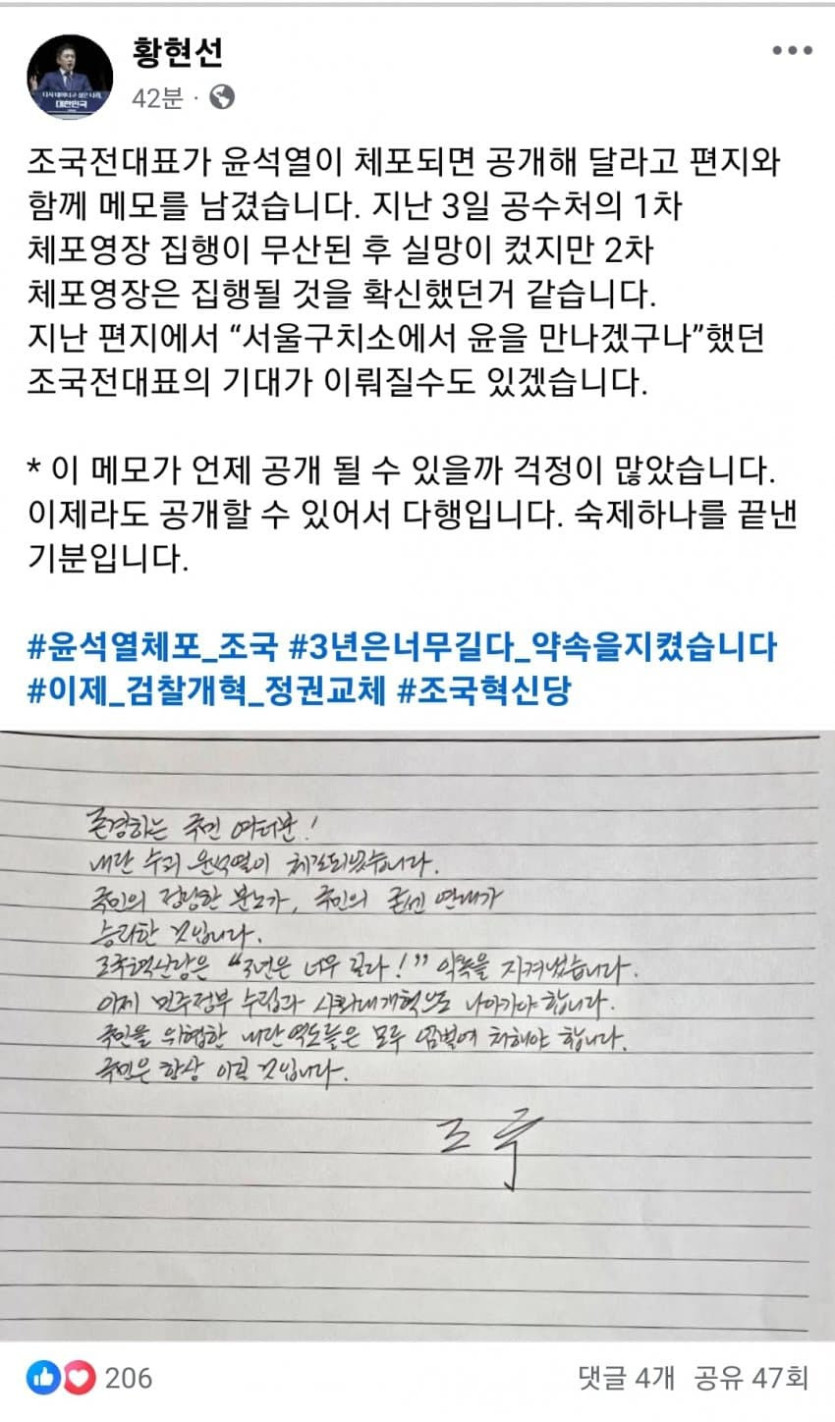 황현선
42분 ·
조국전대표가 윤석열이 체포되면 공개해 달라고 편지와
함께 메모를 남겼습니다. 지난 3일 공수처의 1차
체포영장 집행이 무산된 후 실망이 컸지만 2차
체포영장은 집행될 것을 확신했던거 같습니다.
지난 편지에서 “서울구치소에서 윤을 만나겠구나”했던
조국전대표의 기대가 이뤄질수도 있겠습니다.
* 이 메모가 언제 공개 될 수 있을까 걱정이 많았습니다.
이제라도 공개할 수 있어서 다행입니다. 숙제하나를 끝낸
기분입니다.
#윤석열체포_조국 #3년은너무길다_약속을지켰습니다
#이제_검찰개혁_정권교체 #조국혁신당
존경하는 국민 여러분!
내란 수괴 윤석열이 체포되었습니다.
국민의 정당한 분노가, 국민의 굳센 연대가
승리한 것입니다.
조국혁신당은 “3년은 너무 길다!” 약속을 지켜냈습니다.
이제 민주정부 수립과 사회대개혁으로 나아가야 합니다.
국민을 위협한 내란 역도들은 모두 엄벌에 처해야 합니다.
국민은 항상 이길 것입니다.
조국
206
댓글 4개 공유 47회